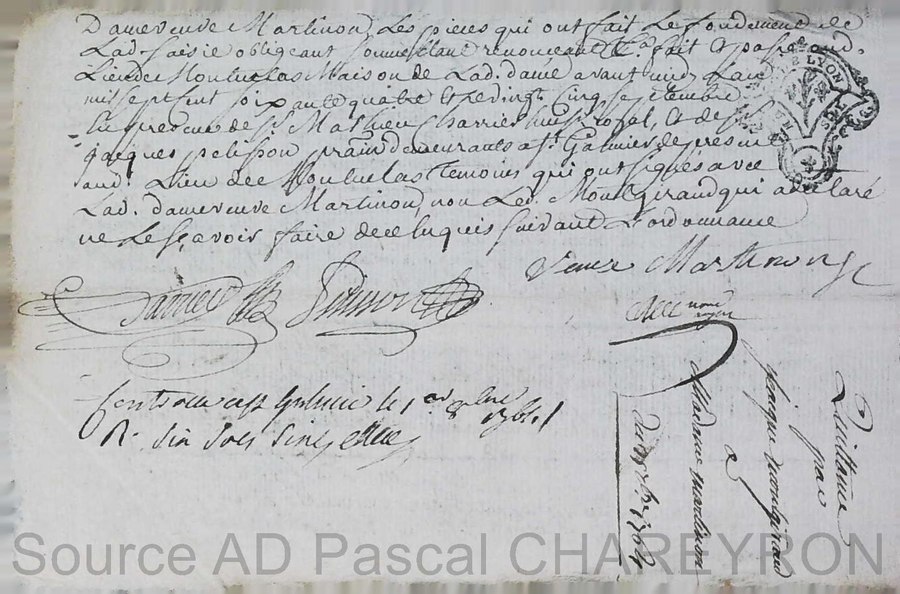 Dame veuve Martinon, Les pieces qui ont fait Le fondement de
Lad. saisie obligeant soumettant renonceant &a. fait & passé aud.
Lieu de Montuclas Maison de Lad. dame avant midy Lan
mil sept cent soixante quatre et le vingt cinq septembre
En presence de sr. Mathieu Charrier huissr. royal, & de sr.
jacques pelisson prain demeurants a st. Galmier de present
aud. Lieu de Montuclas temoins qui ont signés avec
Lad. dame veuve Martinon, non Led. Montgiraud qui a declaré
ne Le sçavoir faire de ce Enquis suivant L'ordonnance
Veuve Martinon
Charrier Pelisson
notre
royal
Controllé a st Galmier le 1er 8bre 1764
R. six sols six
Quittance
par
jacque montgiraud
a
Madame martinon
du 25 7bre 1764
LYON
Source AD Pascal CHAREYRON